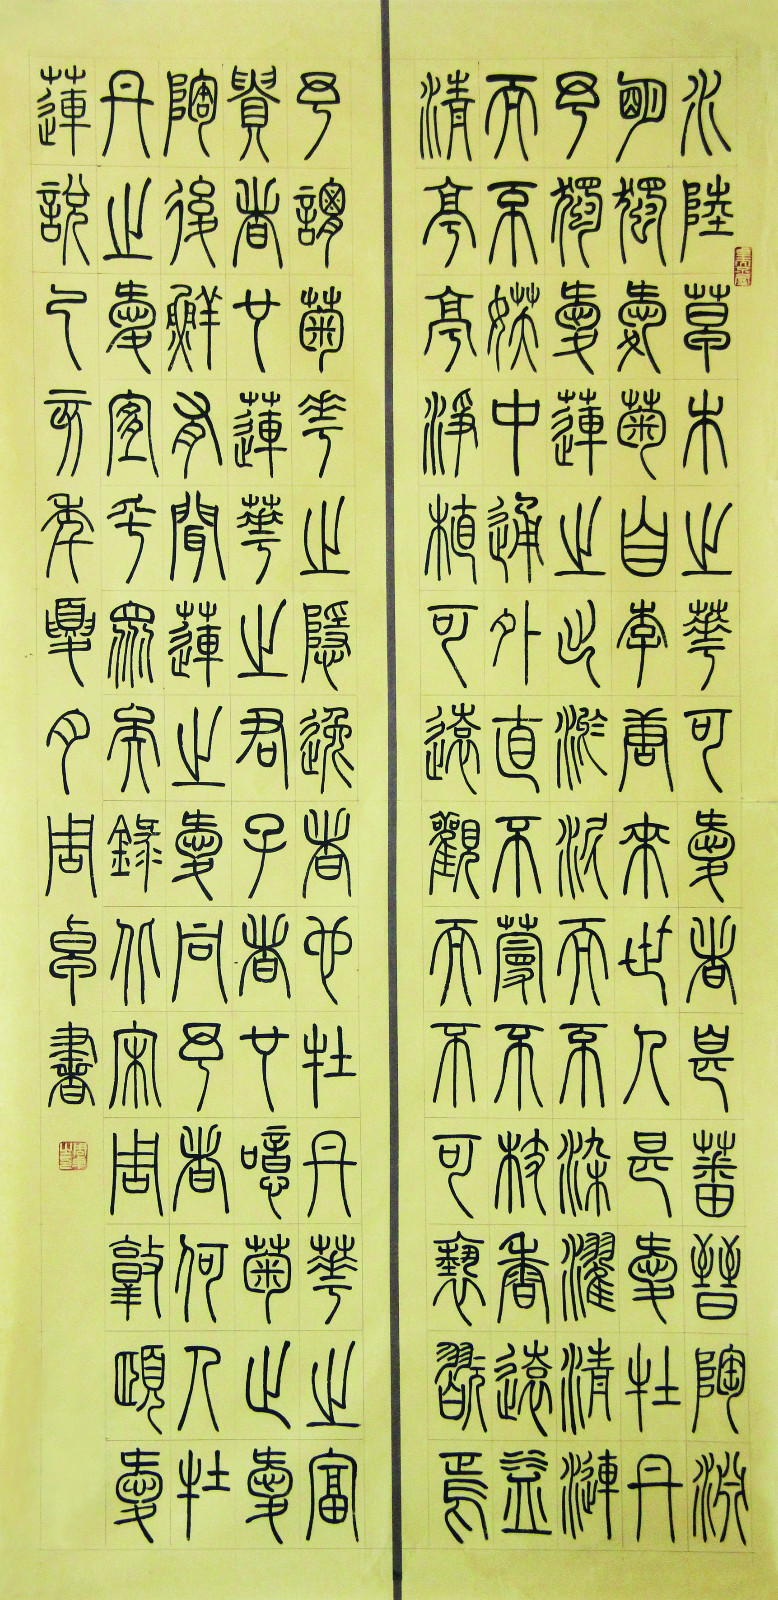 水陸草木之華可愛者甚蕃晉陶淵
明獨愛菊自李唐來世人甚愛牡丹
予獨愛蓮之出淤泥而不染濯清漣
而不妖中通外直不蔓不枝香遠益
清亭亭淨植可遠觀而不可褻翫焉
予謂菊華之隱逸者也牡丹華之富
貴者也蓮華之君子者也噫菊之愛
陶後鮮有聞蓮之愛同予者何人牡
丹之愛宜乎眾矣錄北宋周敦頤愛
蓮說乙亥年夏月周卓書